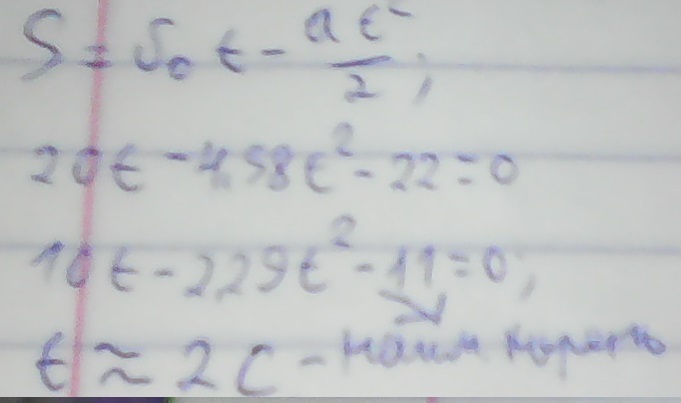 S = S₀ t - at²/2;
20t - 4,58t² - 22 = 0
10t - 2,29t² - 11 = 0;
t ≈ 2 с - наим корень